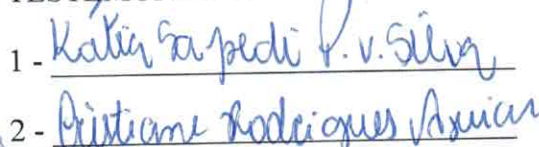 1 - Kátia Sapedi P. v. Silva
2 - Cristiane Rodrigues